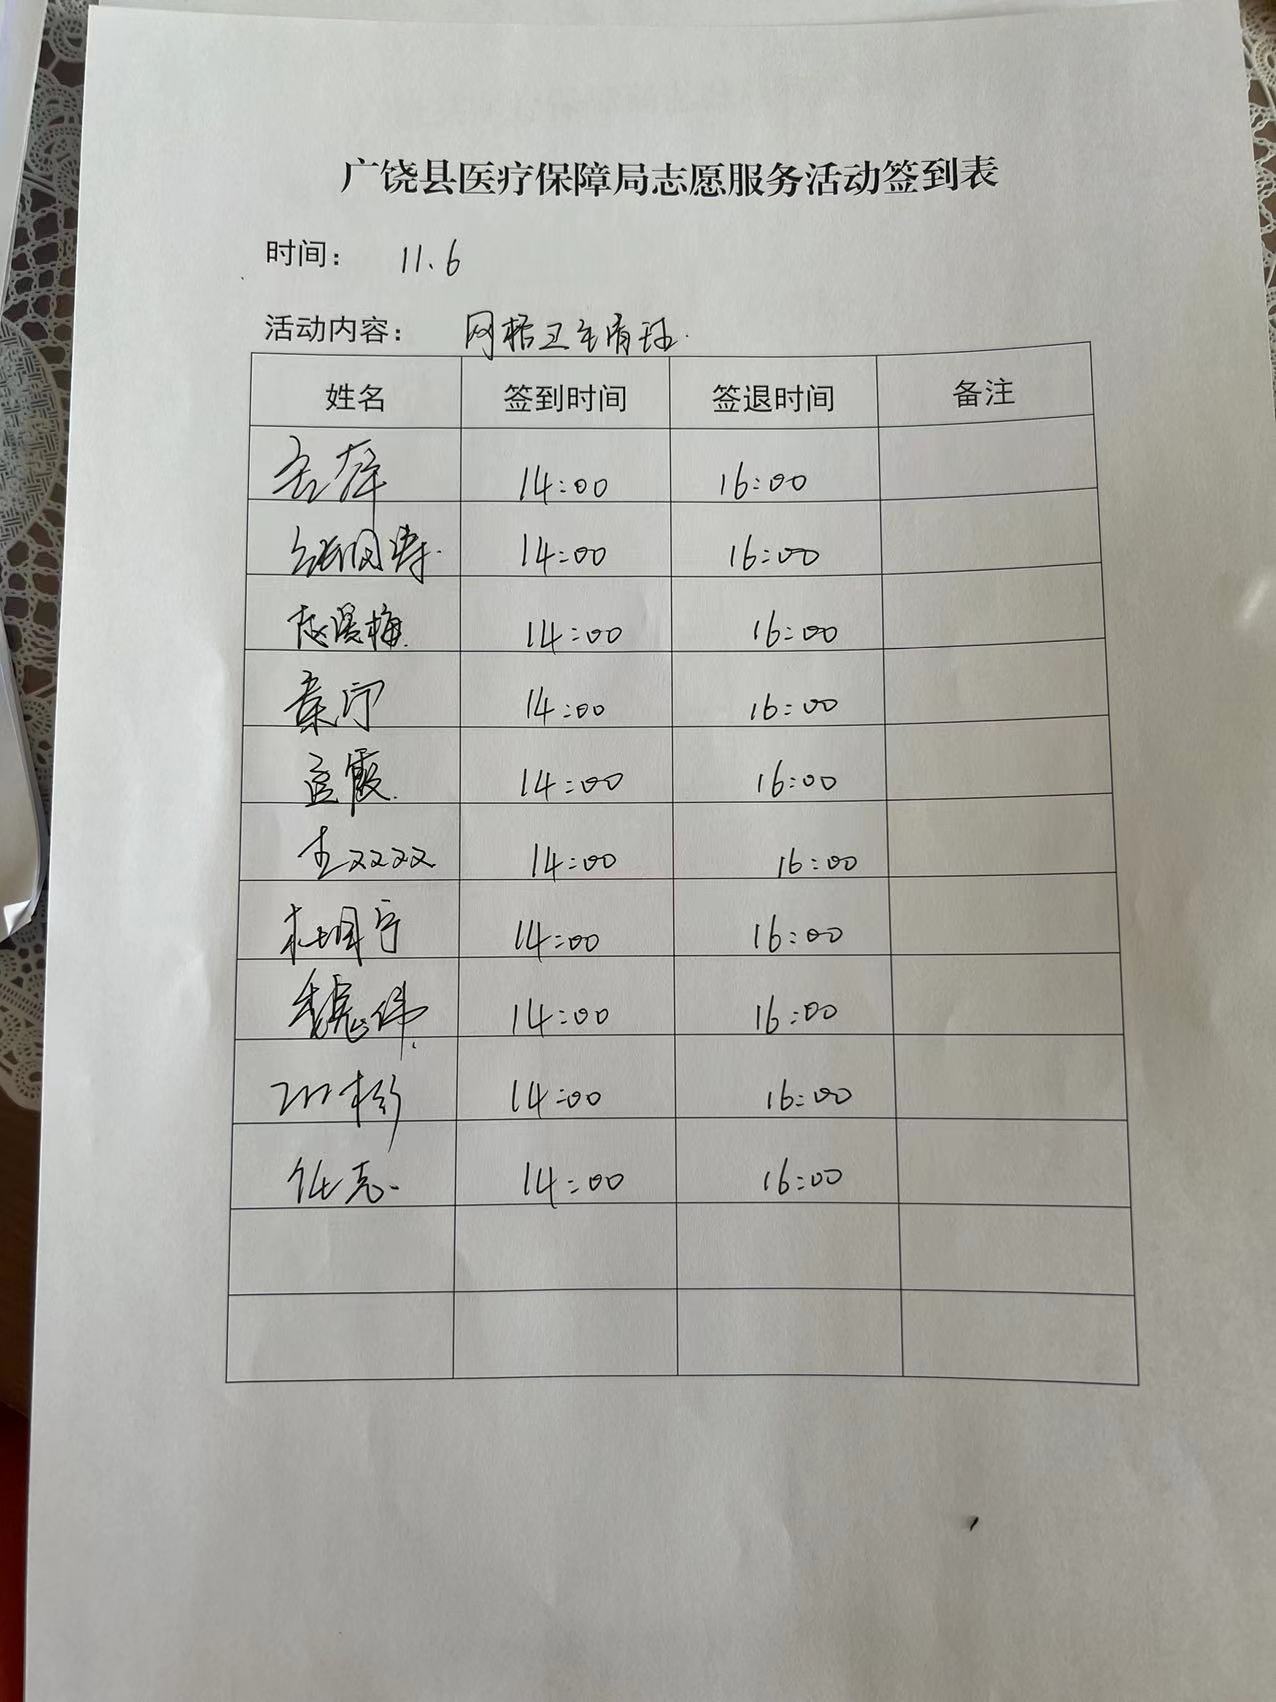 广饶县医疗保障局志愿服务活动签到表
时间： 11.6
活动内容： 网格卫生清理
姓名 签到时间 签退时间 备注
14:00 16:00
14:00 16:00
14:00 16:00
14:00 16:00
孟霞 14:00 16:00
王双双 14:00 16:00
14:00 16:00
魏伟 14:00 16:00
14:00 16:00
任志 14:00 16:00